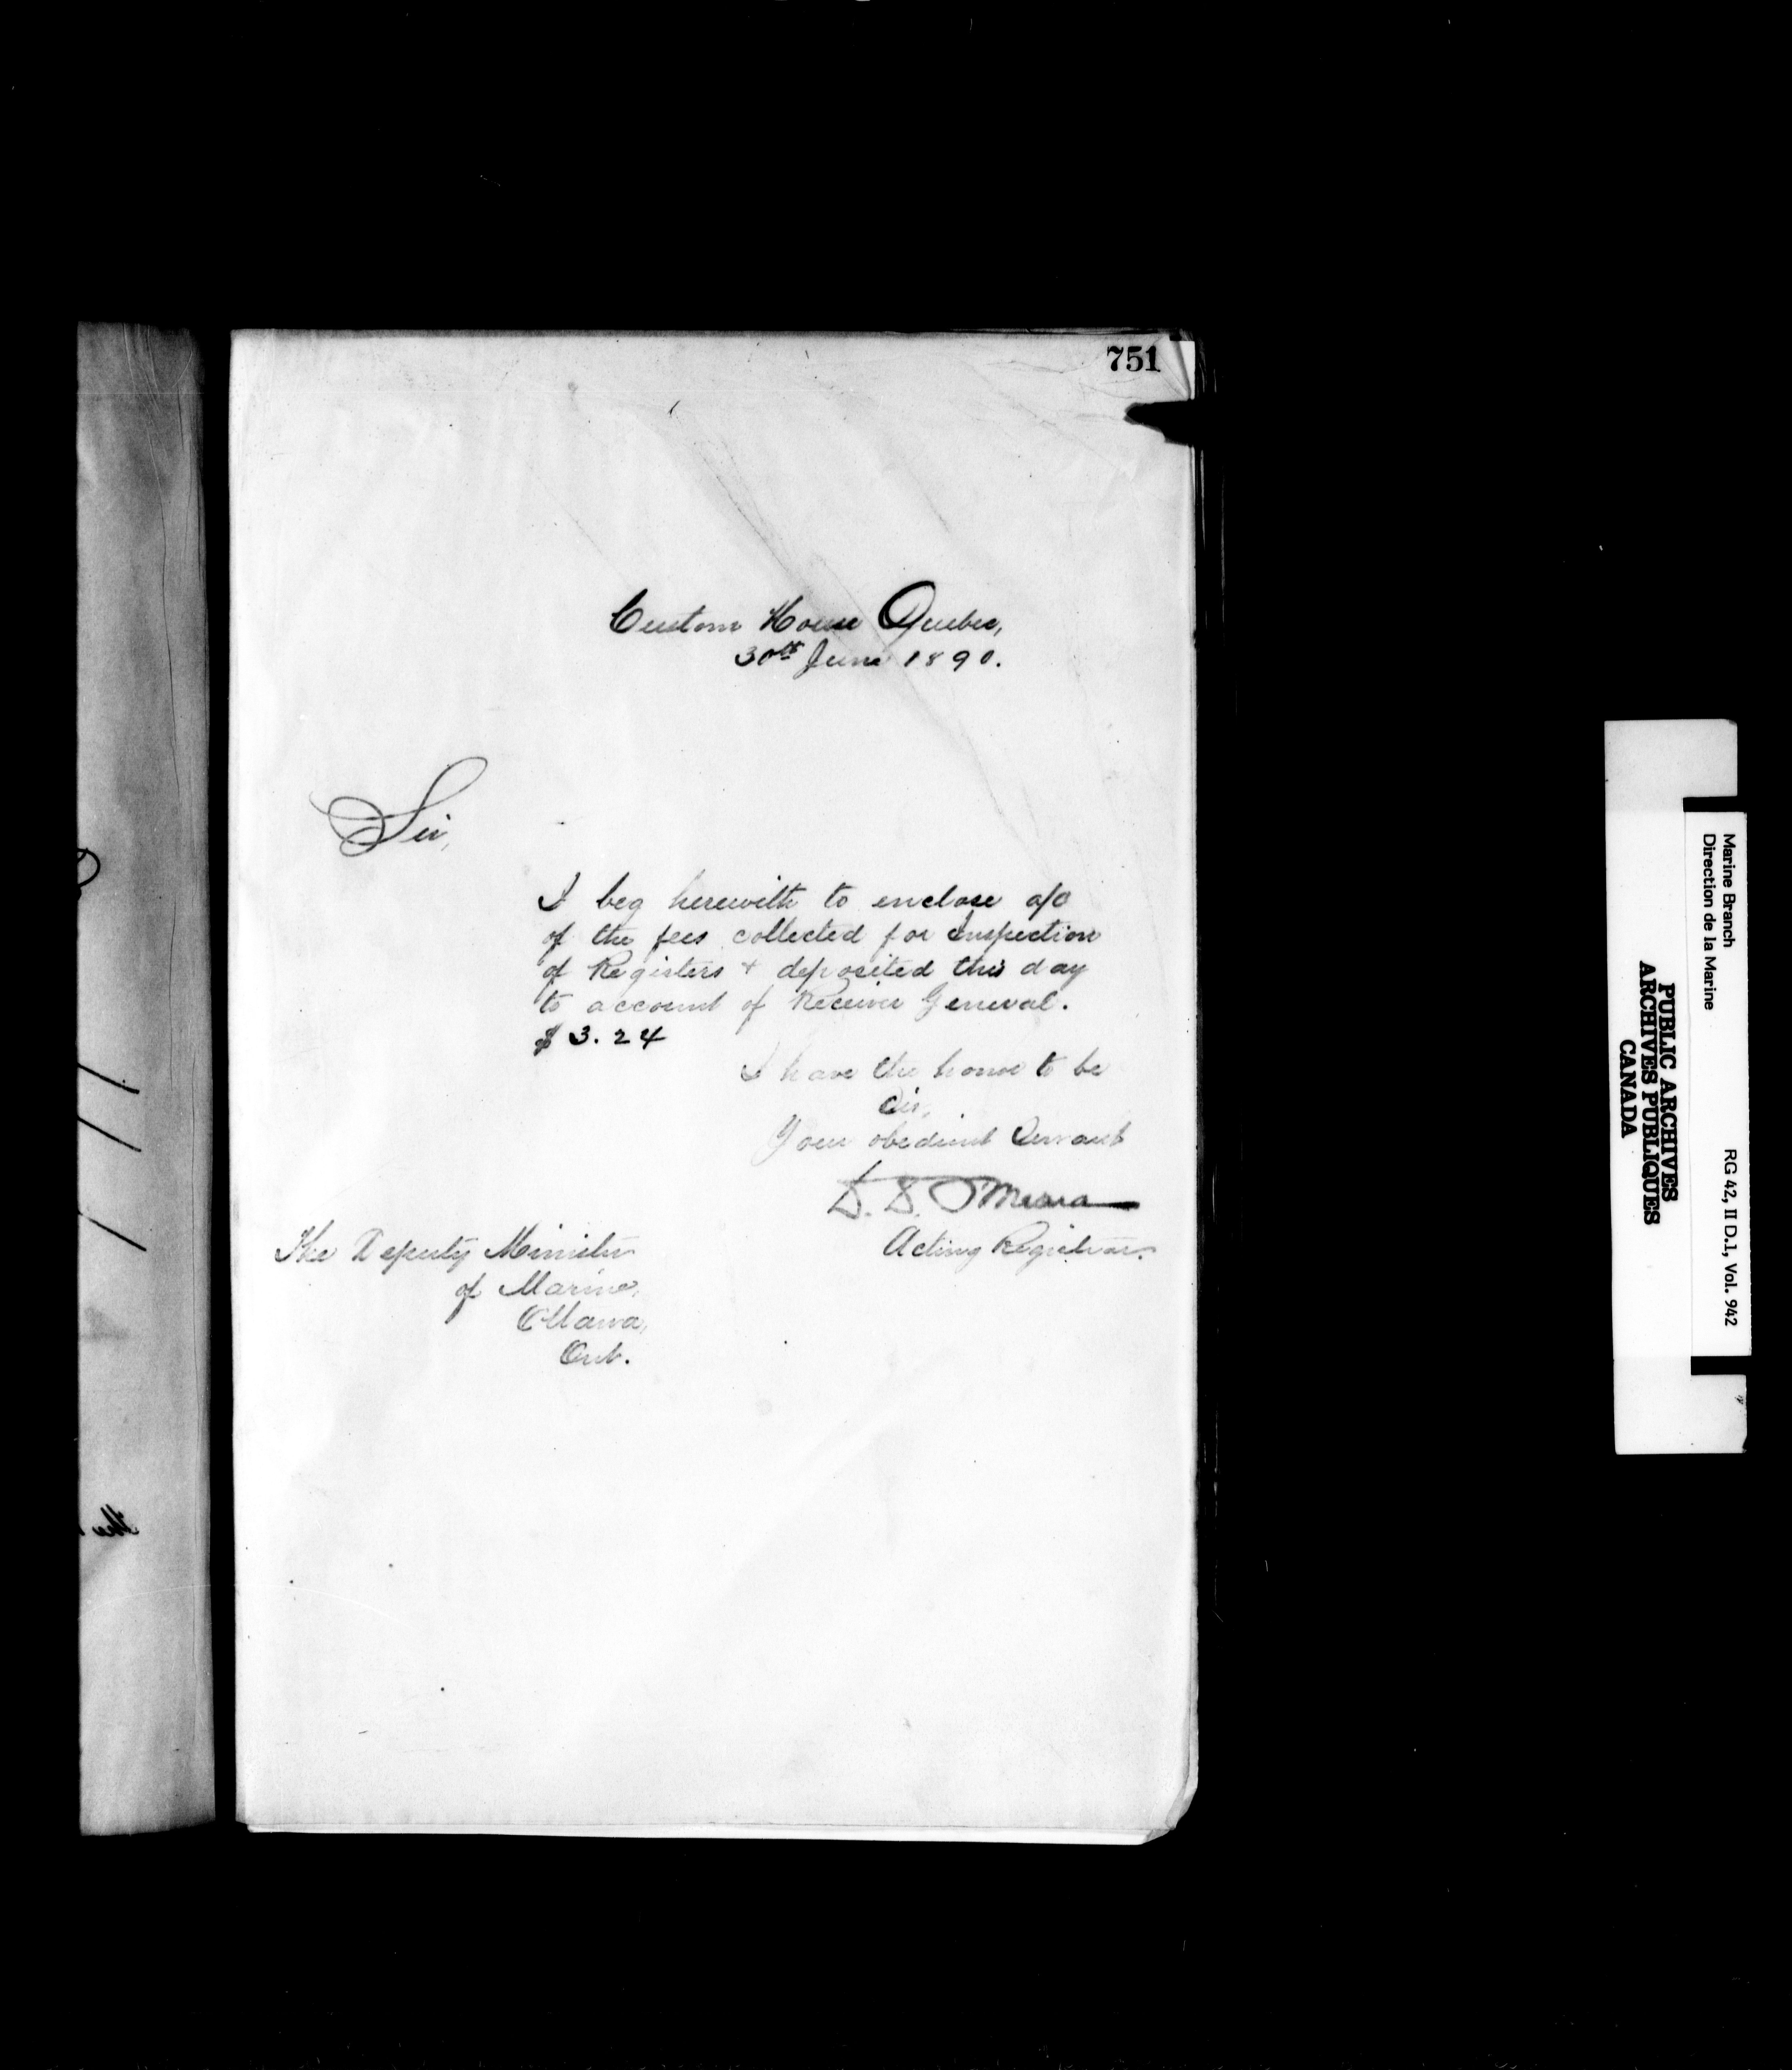 751
Custom House Quebec,
30th June 1890.
Sir,
I beg herewith to enclose a/c
of the fees collected for Inspection
of Registers + deposited this day
to account of Receiver General.
$3.24
I have the honor to be
Sir,
Your obedient Servant
D. D. O'Meara
Acting Registrar.
The Deputy Minister
of Marine,
Ottawa,
Ont.
the
Marine Branch
Direction de la Marine
RG 42, II D.1, Vol. 942
PUBLIC ARCHIVES
ARCHIVES PUBLIQUES
CANADA